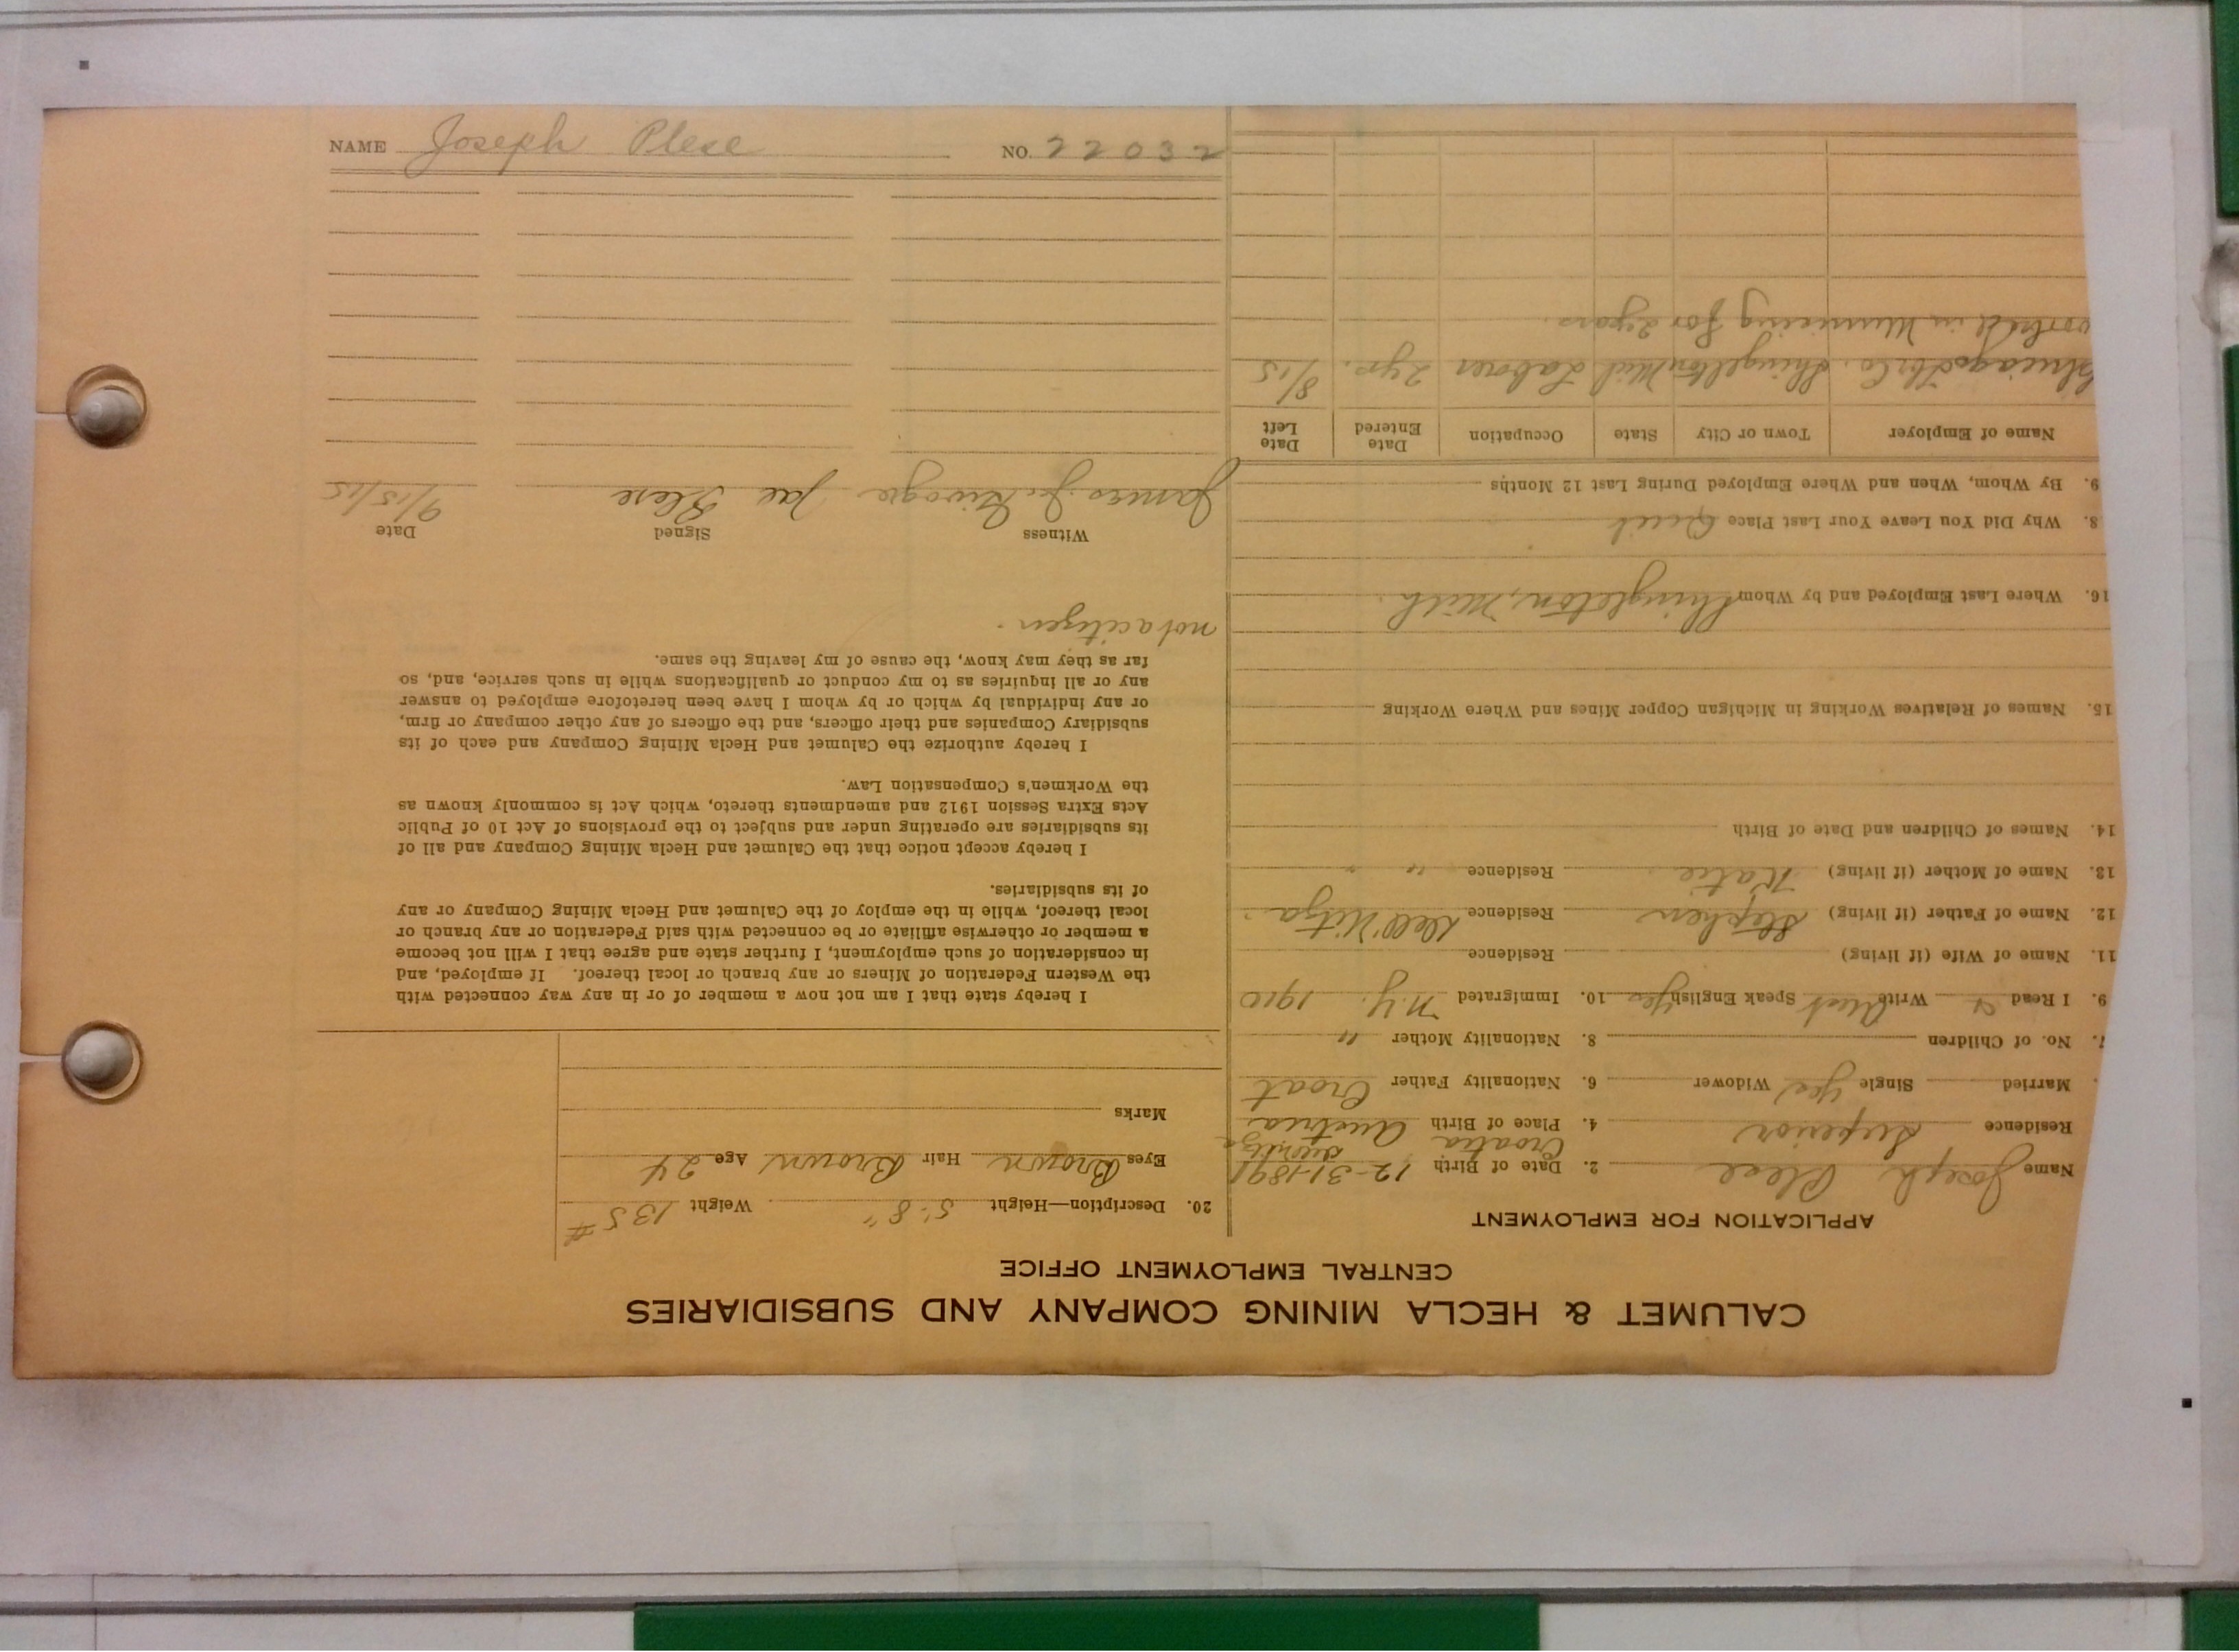 CALUMET & HECLA MINING COMPANY AND SUBSIDIARIES
CENTRAL EMPLOYMENT OFFICE
APPLICATION FOR EMPLOYMENT
Name Joseph Plese 2. Date of Birth 12-31-1891
Residence Superior 4. Place of Birth Croatia Austria
Married Single Yes Widower 6. Nationality Father Croat
7. No. of Children 8. Nationality Mother "
9. I Read & Write Aust Speak English yes 10. Immigrated N.Y. 1910
11. Name of Wife (if living) Residence
12. Name of Father (if living) Stephen Residence
13. Name of Mother (if living) Katie Residence " "
14. Names of Children and Date of Birth
15. Names of Relatives Working in Michigan Copper Mines and Where Working
16. Where Last Employed and by Whom Shingleton, Mich.
8. Why Did You Leave Your Last Place Quit
9. By Whom, When and Where Employed During Last 12 Months
Name of Employer Town or City State Occupation Date Entered Date Left
Chicago Co. Shingleton Mich Laborer 2 yrs. 8/15
worked in Munising for 2 years.
20. Description—Height 5' 8" Weight 135 #
Eyes Brown Hair Brown Age 24
Marks
I hereby state that I am not now a member of or in any way connected with
the Western Federation of Miners or any branch or local thereof. If employed, and
in consideration of such employment, I further state and agree that I will not become
a member or otherwise affiliate or be connected with said Federation or any branch or
local thereof, while in the employ of the Calumet and Hecla Mining Company or any
of its subsidiaries.
I hereby accept notice that the Calumet and Hecla Mining Company and all of
its subsidiaries are operating under and subject to the provisions of Act 10 of Public
Acts Extra Session 1912 and amendments thereto, which Act is commonly known as
the Workmen's Compensation Law.
I hereby authorize the Calumet and Hecla Mining Company and each of its
subsidiary Companies and their officers, and the officers of any other company or firm,
or any individual by which or by whom I have been heretofore employed to answer
any or all inquiries as to my conduct or qualifications while in such service, and, so
far as they may know, the cause of my leaving the same.
not a citizen.
Witness Signed Date
James J. Joe Plese 9/15/15
NAME Joseph Plese NO. 22032